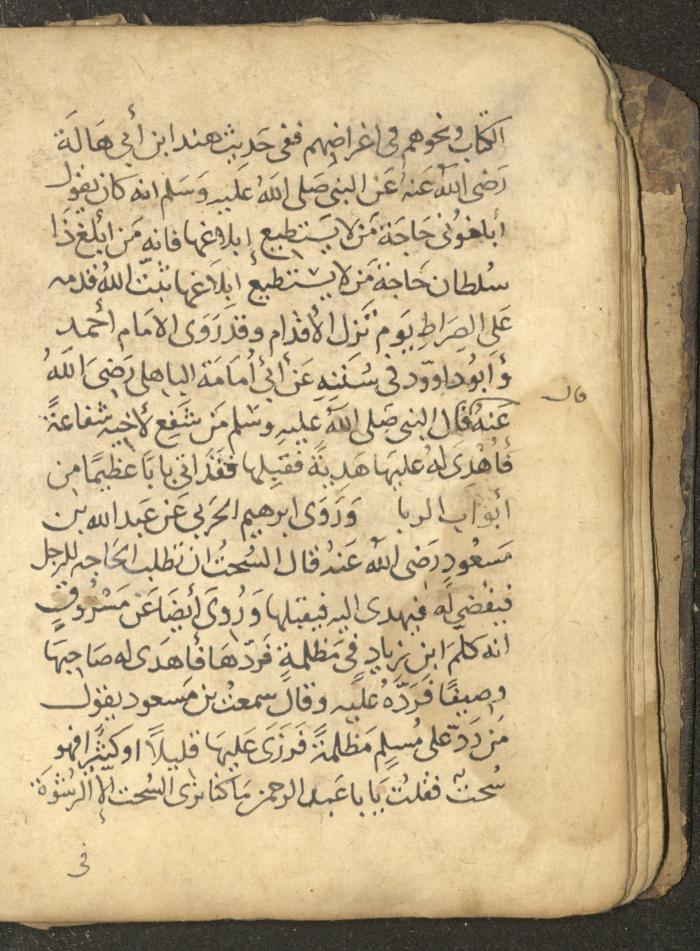 الكتاب ونحوهم في اغراضهم ففى حَدِيث هند ابن أبي هَالَة
رَضى الله عَنهُ عَن النبي صَلى اللهُ عليه وَسَلم انه كان يقول
أبلغونى حَاجَة مَن لا يَسْتطيع إبلاغها فانه مَن أبلغ ذَا
سُلطان حَاجة مَن لا يستطيع ابلاَغها ثبّت اللهُ قدمه
عَلى الصِرَاطِ يَوم تَزل الأقدام وقد رَوَى الامَام أحمد
وأبوُ داوود في سُنَنِهِ عَن أبي أُمَامَة الباهلى رَضىَ اللهُ
عَنهُ قال النبي صَلى الله عليهِ وسَلم مَن شَفع لأخيه شفاعَةً
فأُهْدىَ لهُ عليهَا هَديَّة فقبِلها فقدْ اتى بابًا عَظيمًا من
أبوَاب الربا وَرَوَى ابرهيم الحَربي عَن عَبد الله بن
مَسعُودٍ رَضى الله عَنهُ قال السُحتُ ان تطلب الحَاجه للرجل
فيقضي له فيهدى اليه فيقبلها وَرُوىَ أيضَا عَن مَسْرُوقٍ
انه كلم ابن زيادٍ في مَظلمةٍ فَردّهَا فأهدَى له صَاحِبهَا
وصِيفًا فَرَدَّهُ عليه وقالَ سمعتُ بن مَسعود يقول
مَن رَدَّ على مُسلمٍ مَظلمَةً فَرزَى عَليهَا قليلاً او كثيرًا فهو
سُحت فقلتُ يَا با عَبد الرحمن مَا كنا نرَى السُحت إلا الرشْوَة
في
قال